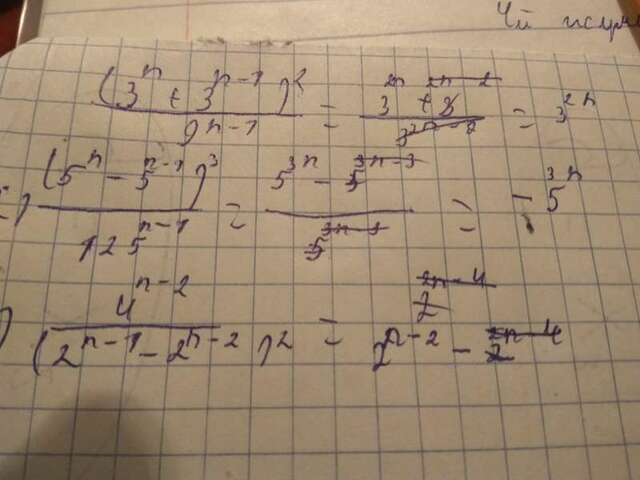 Чи
(3^n + 3^{n-1})^2 / 9^{n-1} = 3^{2n} + 3^{2n-2} / 3^{2n-2} = 3^{2n}
(5^n - 5^{n-1})^3 / 125^{n-1} = 5^{3n} - 5^{3n-3} / 5^{3n-3} = -5^{3n}
) 4^{n-2} / (2^{n-1} - 2^{n-2})^2 = 2^{2n-4} / 2^{n-2} - 2^{2n-4}